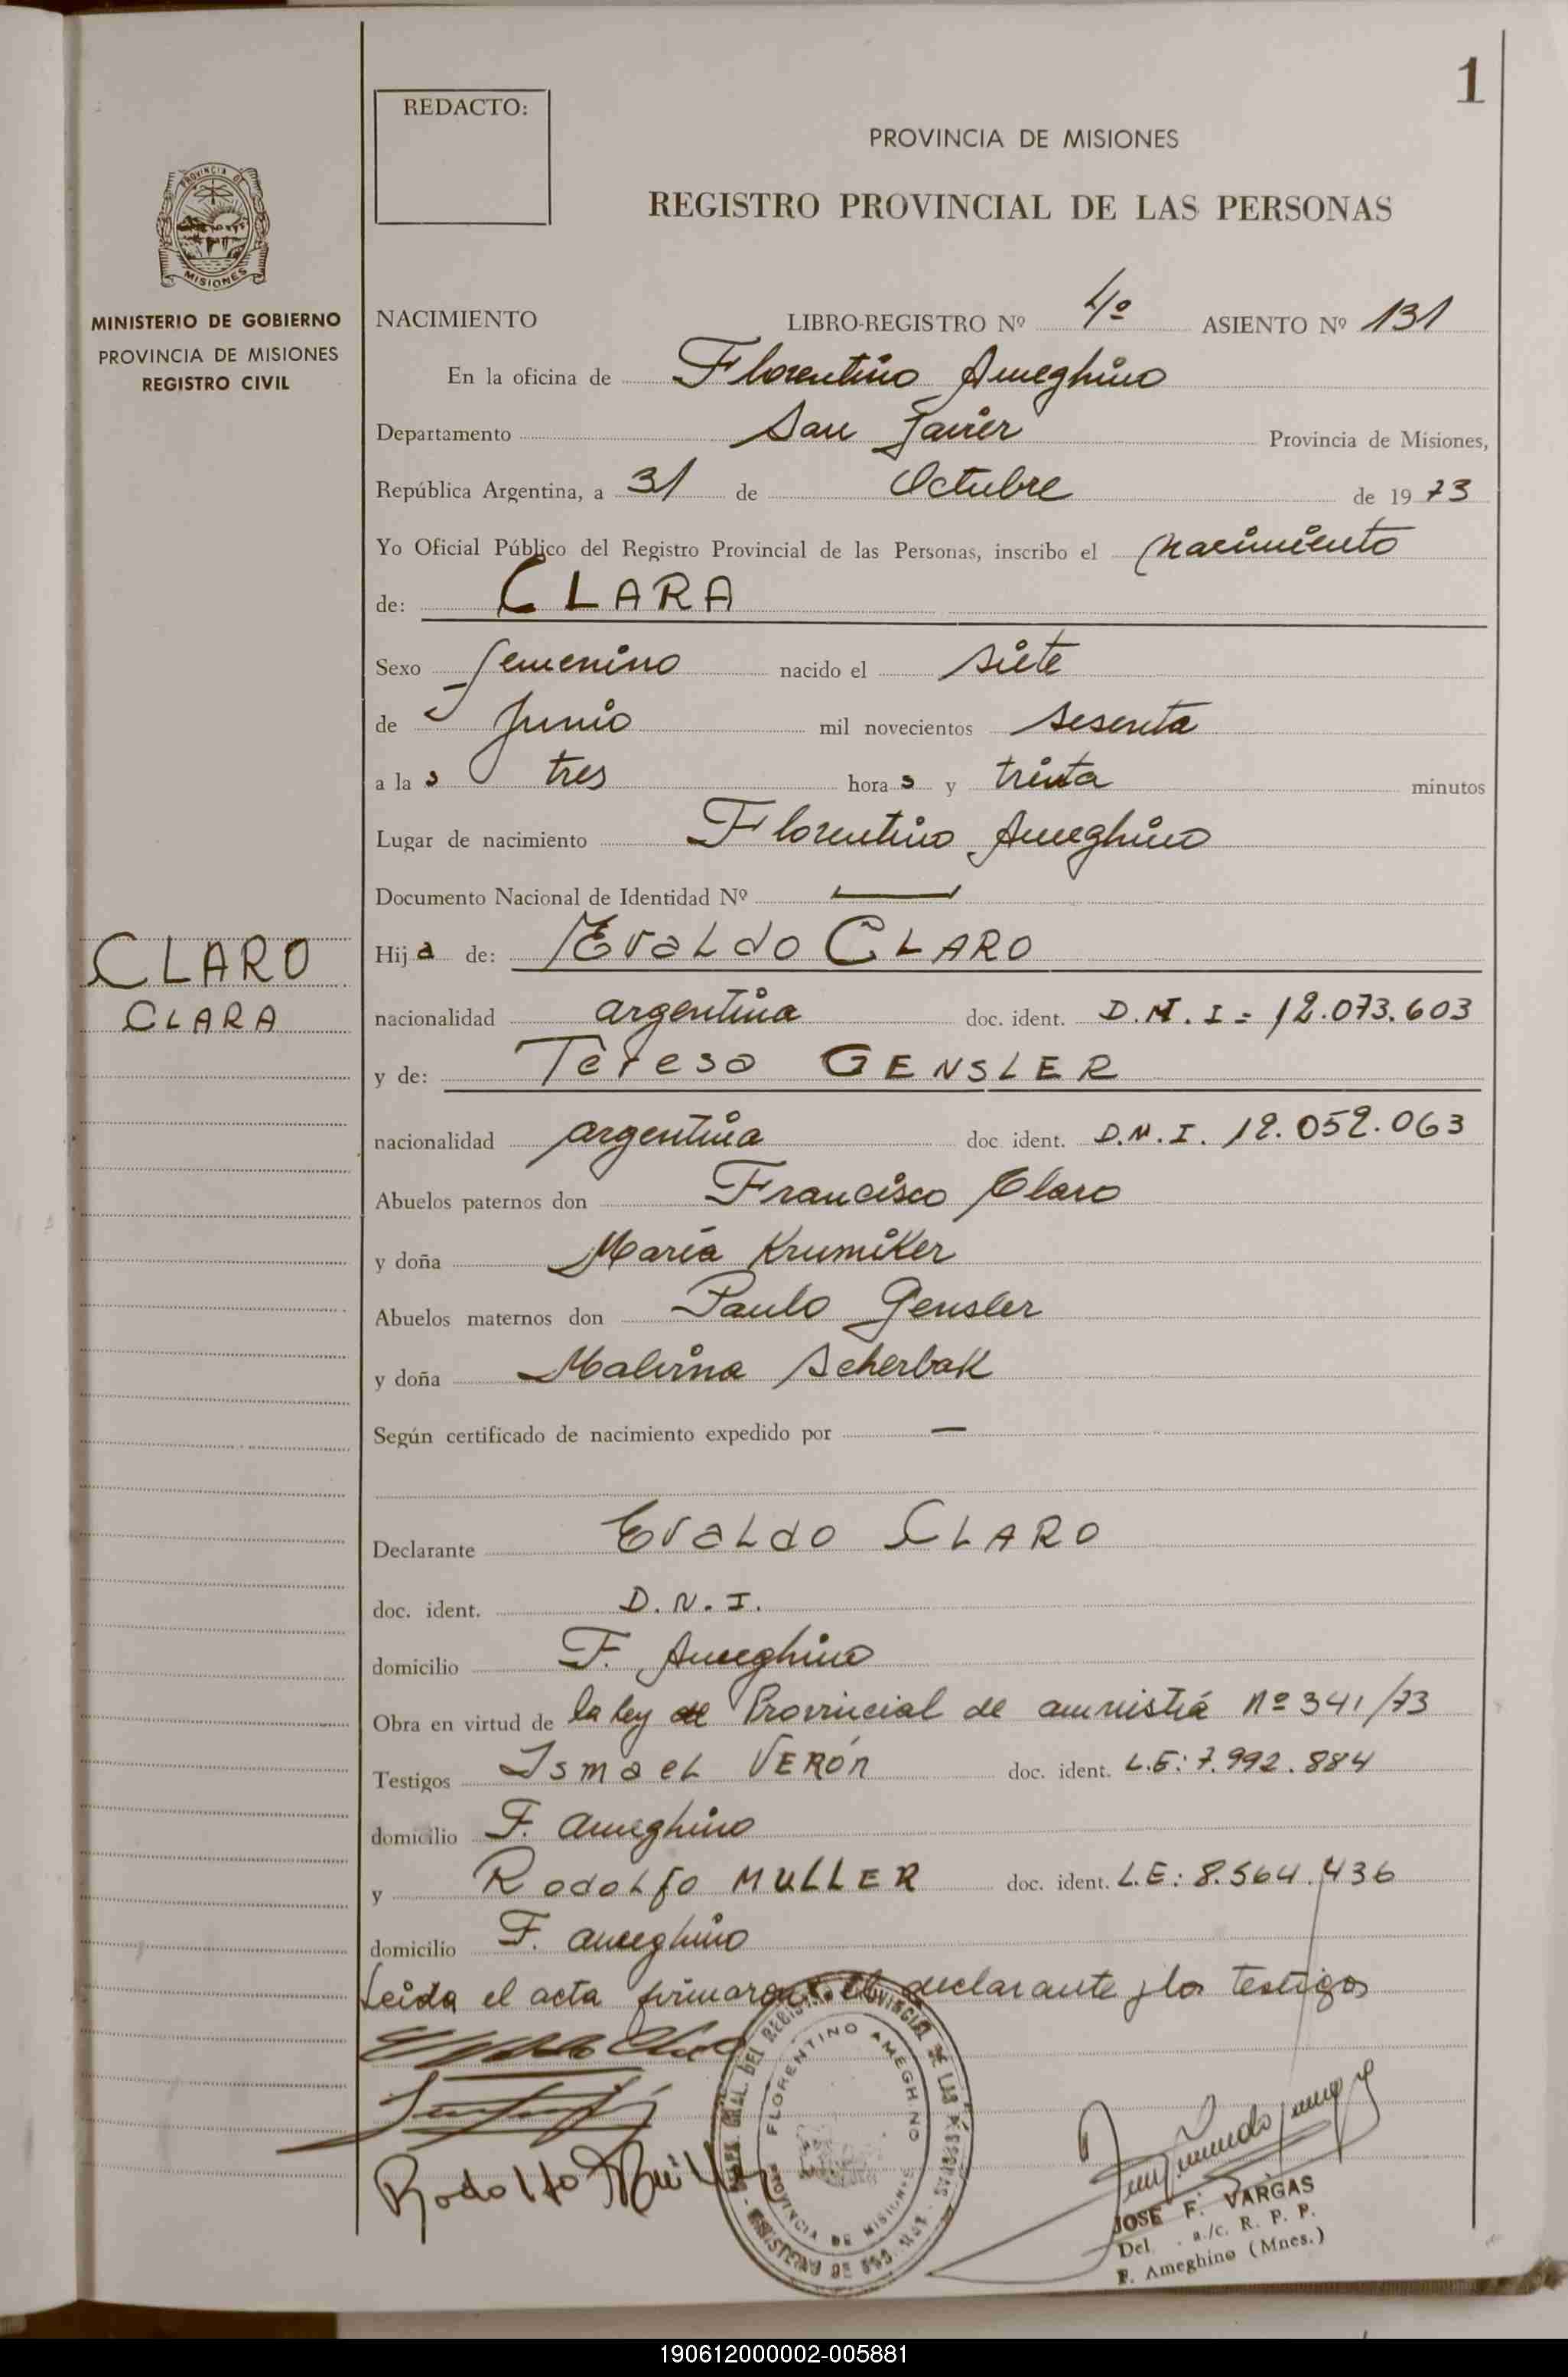 1
REDACTO:
PROVINCIA DE MISIONES
REGISTRO PROVINCIAL DE LAS PERSONAS
PROVINCIA DE
MISIONES
MINISTERIO DE GOBIERNO
PROVINCIA DE MISIONES
REGISTRO CIVIL
NACIMIENTO LIBRO-REGISTRO Nº 4º ASIENTO Nº 131
En la oficina de Florentino Ameghino
Departamento San Javier Provincia de Misiones,
República Argentina, a 31 de Octubre de 1973
Yo Oficial Público del Registro Provincial de las Personas, inscribo el nacimiento
de: CLARA
Sexo femenino nacido el siete
de Junio mil novecientos sesenta
a las tres horas y treinta minutos
Lugar de nacimiento Florentino Ameghino
Documento Nacional de Identidad Nº —
CLARO
CLARA
Hija de: Evaldo CLARO
nacionalidad argentina doc. ident. D.N.I = 12.073.603
y de: Teresa GENSLER
nacionalidad argentina doc. ident. D.N.I. 12.052.063
Abuelos paternos don Francisco Claro
y doña María Krumiker
Abuelos maternos don Paulo Gensler
y doña Malvina Scherbak
Según certificado de nacimiento expedido por —
Declarante Evaldo CLARO
doc. ident. D.N.I.
domicilio F. Ameghino
Obra en virtud de la ley de Provincial de amnistía nº 341/73
Testigos Ismael VERÓN doc. ident. L.E: 7.992.884
domicilio F. Ameghino
y Rodolfo MULLER doc. ident. L.E: 8.564.436
domicilio F. Ameghino
Leida el acta firmaron el declarante y los testigos
Rodolfo Muller
FLORENTINO AMEGHINO
PROVINCIA DE MISIONES
JOSE F. VARGAS
Del. a/c. R. P. P.
F. Ameghino (Mnes.)
190612000002-005881